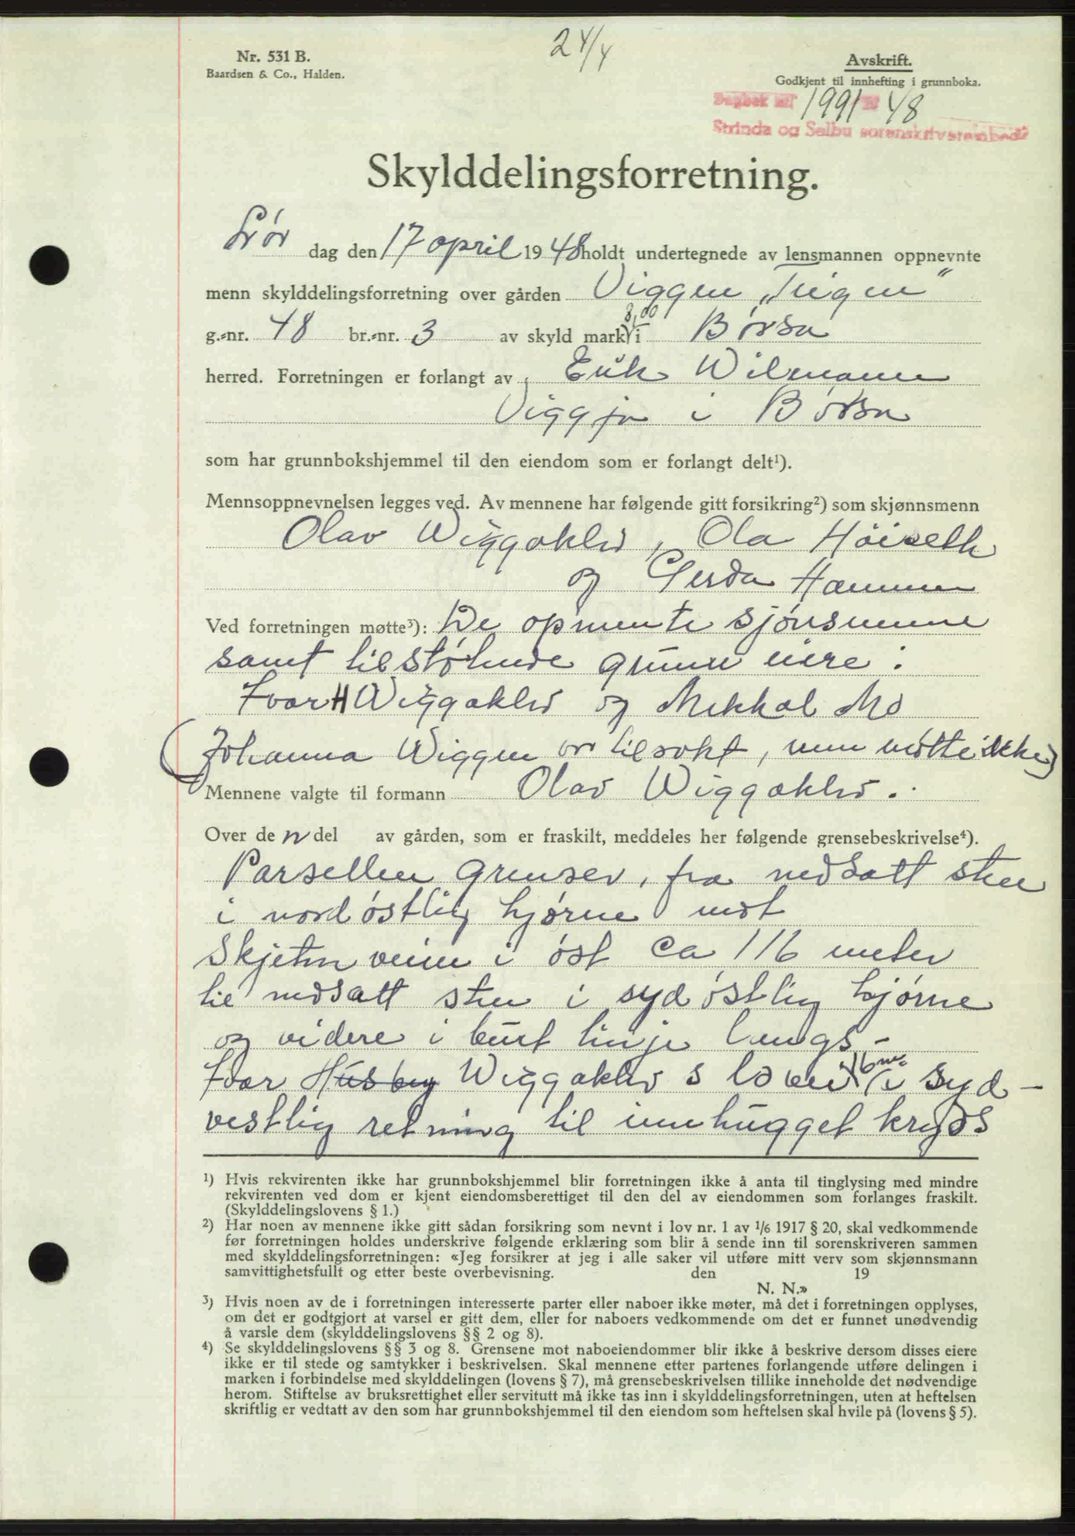 24/4
Nr. 531 B.
Baardsen & Co., Halden.
Avskrift.
Godkjent til innhefting i grunnboka.
Dagbok nr. 1991 19 48
Strinda og Selbu sorenskriverembede
Skylddelingsforretning.
Lør dag den 17 april 1948 holdt undertegnede av lensmannen oppnevnte
menn skylddelingsforretning over gården Viggen „Trigen"
g.-nr. 48 br.-nr. 3 av skyld mark 3,00 i Børsa
herred. Forretningen er forlangt av Erik Wilmann
Viggja i Børsa
som har grunnbokshjemmel til den eiendom som er forlangt delt¹).
Mennsoppnevnelsen legges ved. Av mennene har følgende gitt forsikring²) som skjønnsmenn
Olav Wiggaklev, Ola Høiseth
og Gerda Hammer
Ved forretningen møtte³): De opnevnte sjønsmenn
samt tilstøtende grunneiere:
Ivar H Wiggaklev og Mikkal Mo
(Johanna Wiggen er tilsakt, men møtte ikke)
Mennene valgte til formann Olav Wiggaklev.
Over de n del av gården, som er fraskilt, meddeles her følgende grensebeskrivelse⁴).
Parsellen grenser, fra nedsatt sten
i nordøstlig hjørne mot
Skjetnveien i øst ca 116 meter
til nedsatt sten i sydøstlig hjørne
og videre i beint linje langs-
Ivar Husby Wiggaklev s lo vei i syd-
vestlig retning til innhugget kryss
¹) Hvis rekvirenten ikke har grunnbokshjemmel blir forretningen ikke å anta til tinglysing med mindre
rekvirenten ved dom er kjent eiendomsberettiget til den del av eiendommen som forlanges fraskilt.
(Skylddelingslovens § 1.)
²) Har noen av mennene ikke gitt sådan forsikring som nevnt i lov nr. 1 av 1/6 1917 § 20, skal vedkommende
før forretningen holdes underskrive følgende erklæring som blir å sende inn til sorenskriveren sammen
med skylddelingsforretningen: «Jeg forsikrer at jeg i alle saker vil utføre mitt verv som skjønnsmann
samvittighetsfullt og etter beste overbevisning. den 19
N. N.»
³) Hvis noen av de i forretningen interesserte parter eller naboer ikke møter, må det i forretningen opplyses,
om det er godtgjort at varsel er gitt dem, eller for naboers vedkommende om det er funnet unødvendig
å varsle dem (skylddelingslovens §§ 2 og 8).
⁴) Se skylddelingslovens §§ 3 og 8. Grensene mot naboeiendommer blir ikke å beskrive dersom disses eiere
ikke er til stede og samtykker i beskrivelsen. Skal mennene etter partenes forlangende utføre delingen i
marken i forbindelse med skylddelingen (lovens § 7), må grensebeskrivelsen tillike inneholde det nødvendige
herom. Stiftelse av bruksrettighet eller servitutt må ikke tas inn i skylddelingsforretningen, uten at heftelsen
skriftlig er vedtatt av den som har grunnbokshjemmel til den eiendom som heftelsen skal hvile på (lovens § 5).